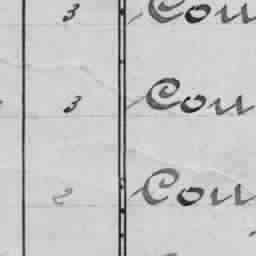 3 Cou
3 Cou
2 Cou